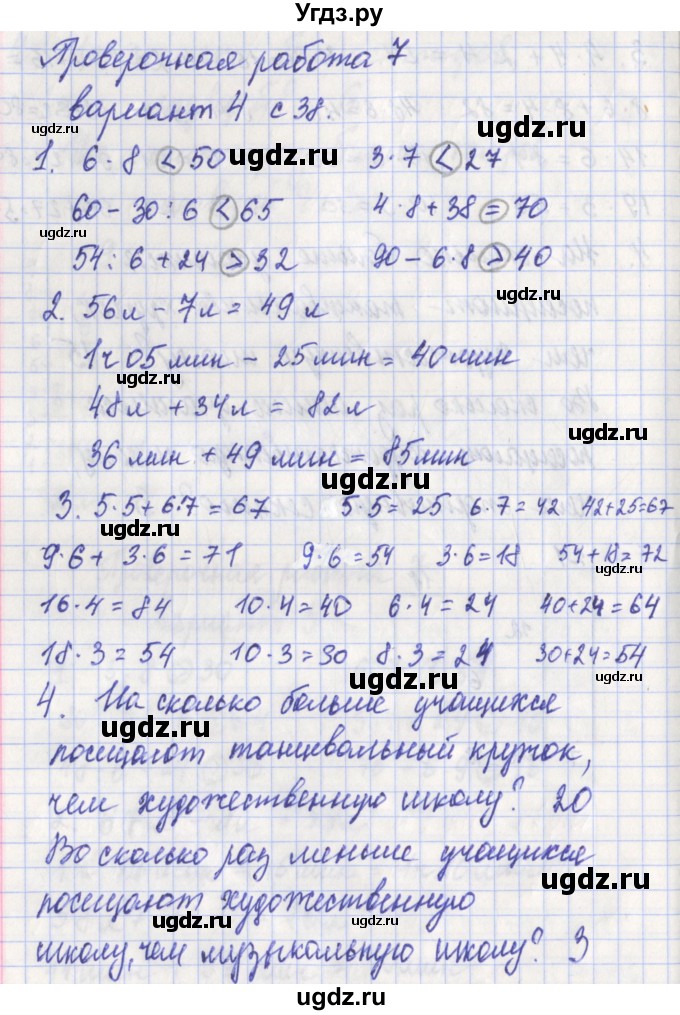 Угдз.ру
Проверочная работа 7
вариант 4 с 38.
ugdz.ru
ugdz.ru
1. 6·8 < 50 ugdz.ru 3·7 < 27
60 - 30 : 6 < 65 4·8+38 = 70
ugdz.ru
ugdz.ru
54 : 6 + 24 > 32 90 - 6·8 > 40
ugdz.ru
2. 56л - 7л = 49 л
1ч 05 мин - 25 мин = 40 мин
ugdz.ru
48л + 34л = 82л
36 мин + 49 мин = 85 мин
ugdz.ru
ugdz.ru
3. 5·5+6·7 = 67 5·5=25 6·7=42 42+25=67
ugdz.ru
9·6+ 3·6 = 71 9·6=54 3·6=18 54+18=72
16·4 = 84 10·4=40 6·4=24 40+24=64
ugdz.ru
18·3 = 54 10·3=30 8·3=24 30+24=54
ugdz.ru
4. На сколько больше учащихся
ugdz.ru
посещают танцевальный кружок,
чем художественную школу? 20
ugdz.ru
Во сколько раз меньше учащихся
ugdz.ru
посещают художественную
ugdz.ru
школу, чем музыкальную школу? 3
ugdz.ru
ugdz.ru